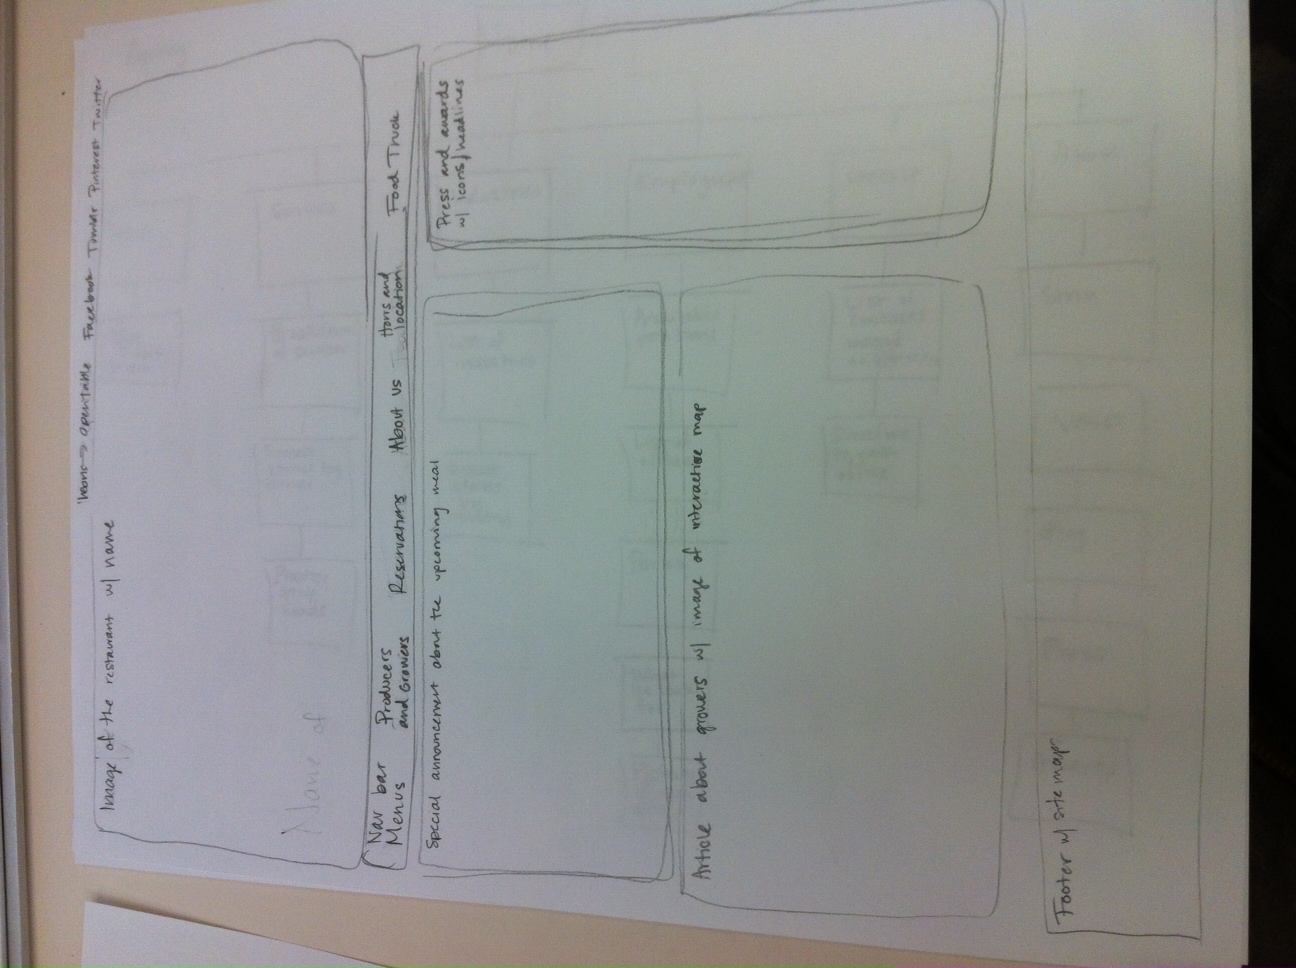 Icons → Opentable Facebook Tumblr Pinterest Twitter
Image of the restaurant w/ name
Name of
Nav bar
Menus
Producers
and Growers
Reservations
About us
Hours and
location
Food Truck
Special announcement about the upcoming meal
Press and awards
w/ icons/headlines
Article about growers w/ image of interactive map
Footer w/ site map